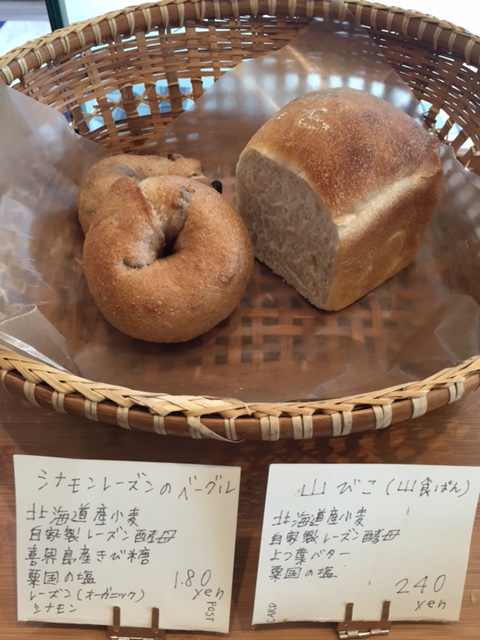 シナモンレーズンのベーグル
北海道産小麦
自家製レーズン酵母
喜界島産きび糖
粟国の塩
レーズン(オーガニック)
シナモン
180
yen
POST
山びこ(山食ぱん)
北海道産小麦
自家製レーズン酵母
よつ葉バター
粟国の塩
240
yen
CARD